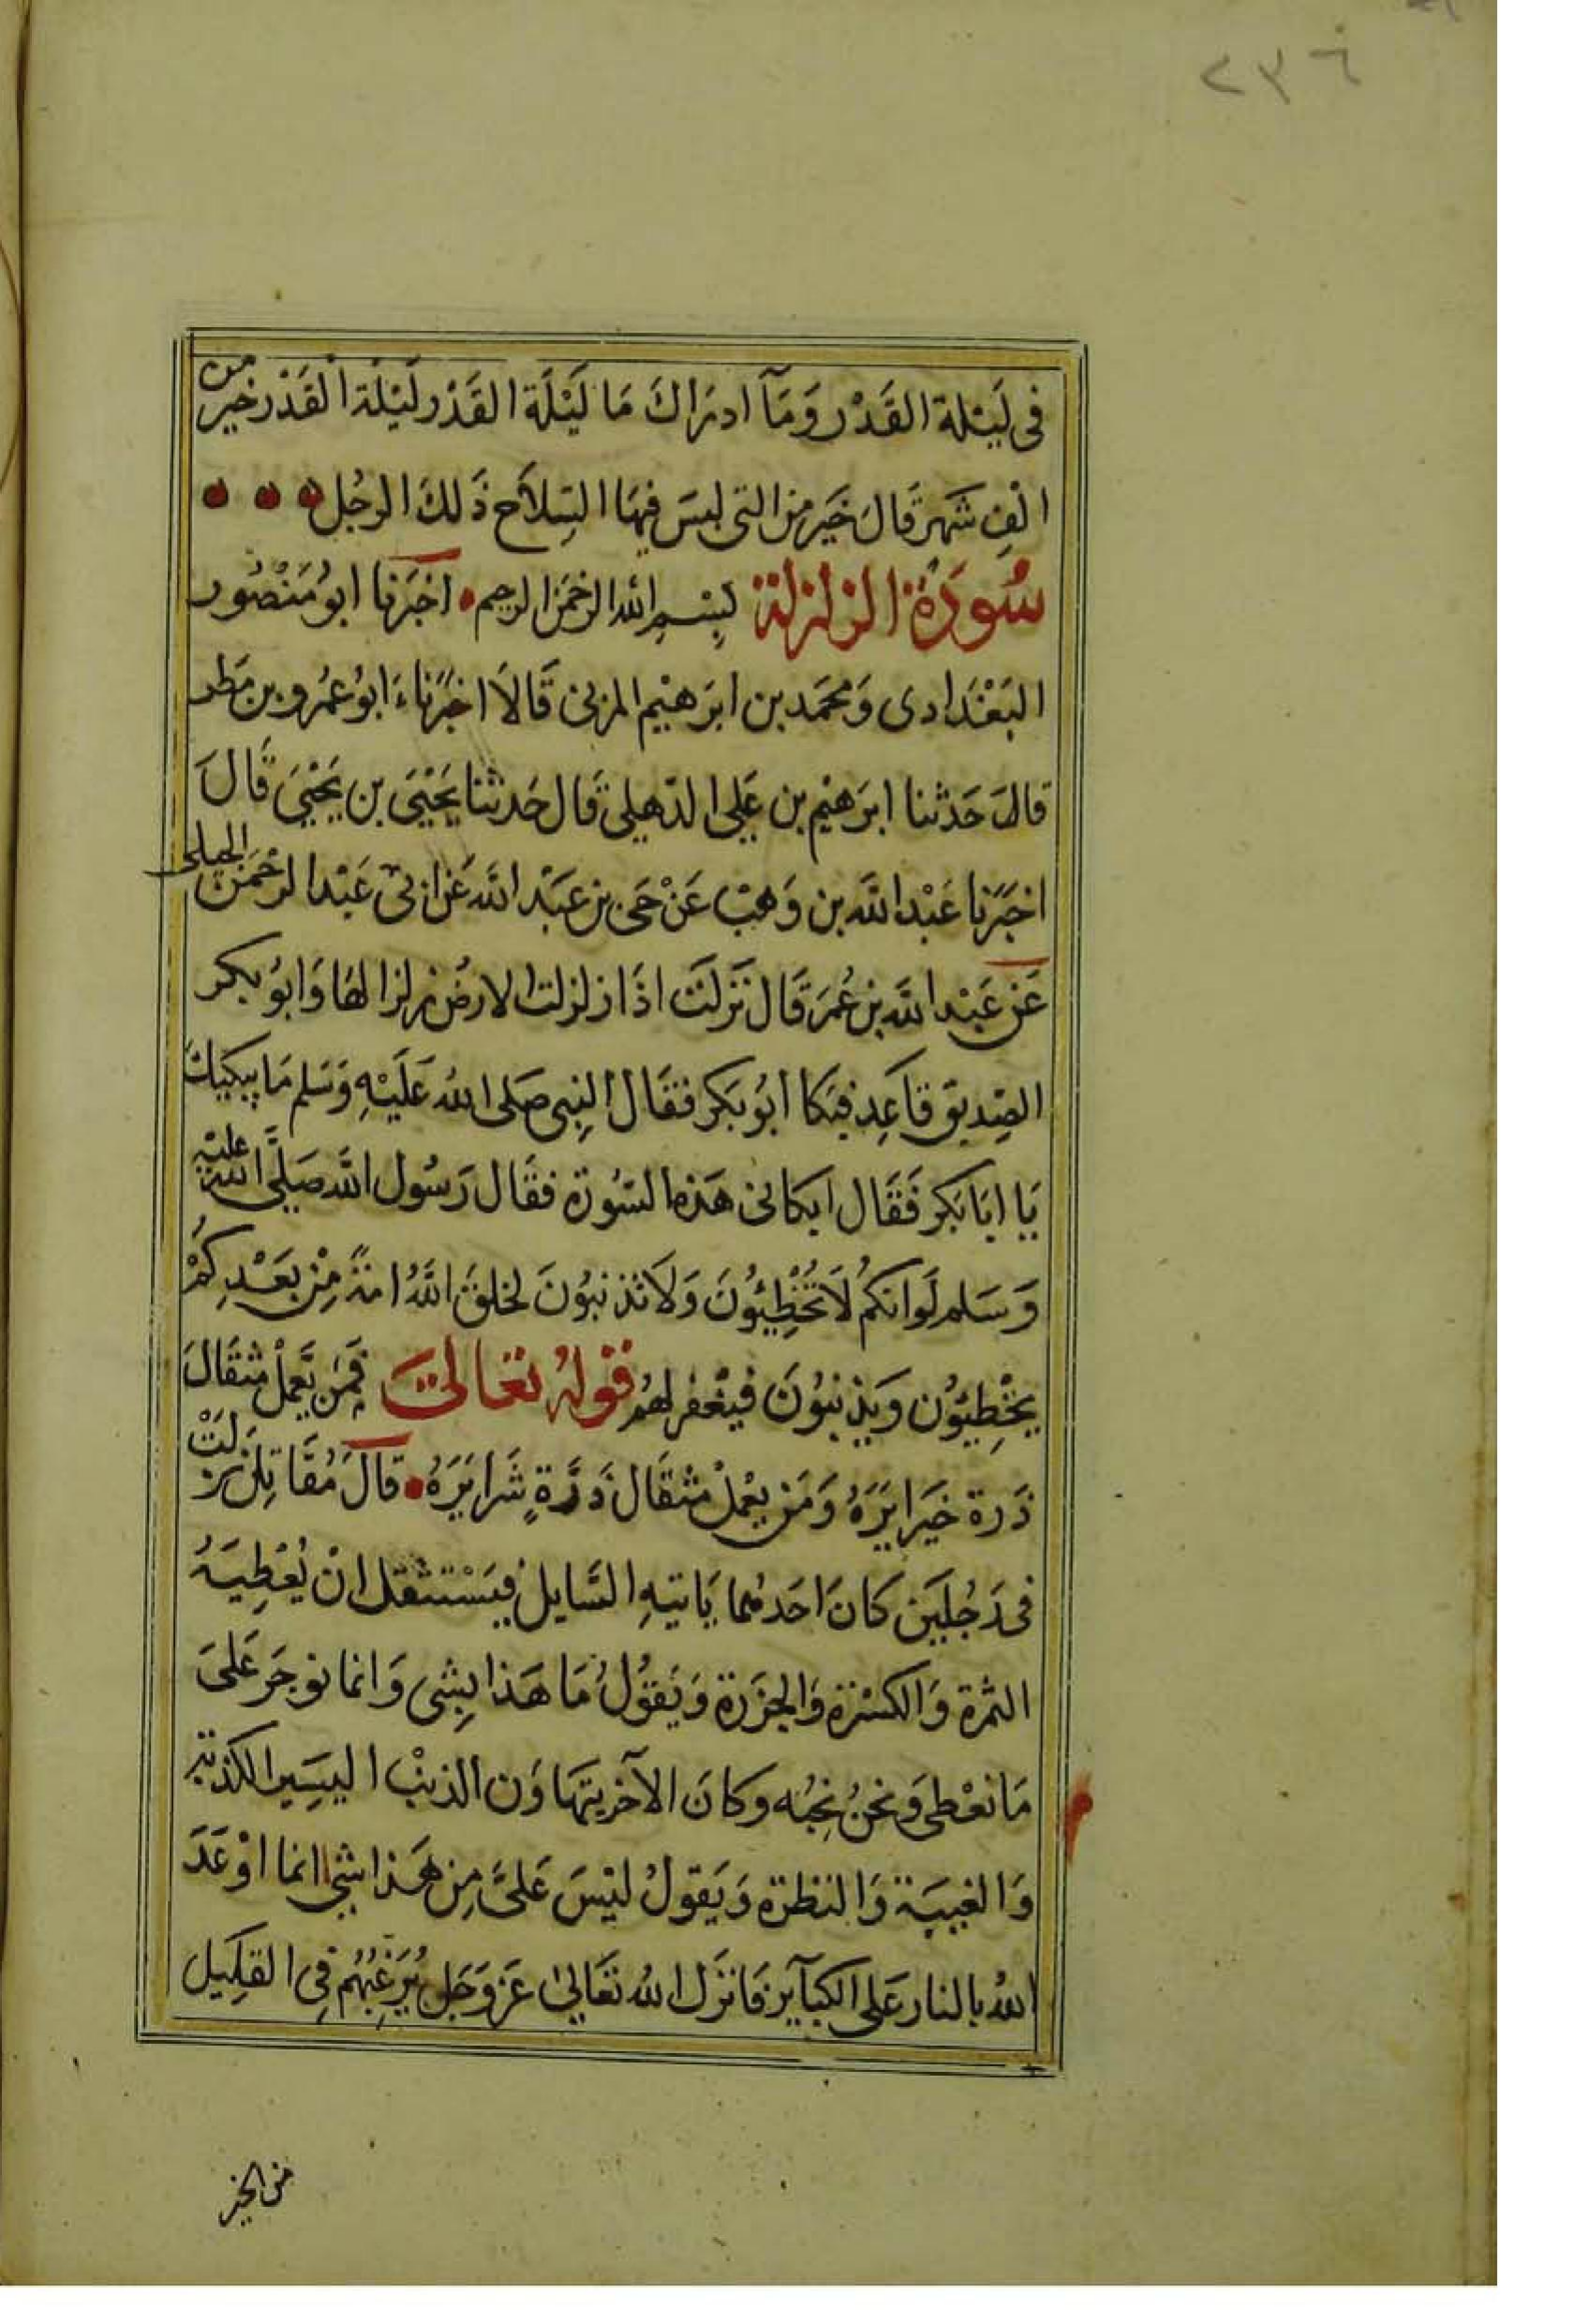 ٢٣٦
فى لَيْلة القَدْر وَمَآ ادرَاكَ مَا لَيْلَة القَدْر لَيْلَة القَدْر خيرٌ من
الْفِ شَهر قَالَ خَير من التى لبسَ فيهَا السِّلاَح ذَلكَ الرجُل
سُورَة الزلزلة بِسْمِ الله الرحمَن الرحيم اخبَرنا ابوُ مَنْصُور
البَغْدَادى وَمحمَد بن ابرَهيْم المزنى قَالاَ اخبَرَناءَ ابوُ عَمْرو بن مَطر
قالَ حَدثنا ابرَهيْم بن عَلِى الدهيلى قَال حَدثنا يَحْيَى بن يَحْيَى قَالَ
اخبَرَنا عَبْد الله بن وَهب عَنْ حَى بن عَبْد الله عَن ابى عَبْد الرحْمَن الحبلى
عَن عَبْد الله بن عُمَر قَال نَزلَت اذَا زلزلت الارضُ زلزالهَا وَابوُ بكر
الصِديق قَاعِد فبَكا ابُو بَكر فقَال النبِى صَلى اللهُ عَلَيْهِ وَسَلم مَا يبكيكَ
يَا ابَا بَكر فَقَال ابكانى هَذه السّورَة فقَال رَسُول الله صَلَّى اللهُ عليه
وَسَلم لَو انكُم لاَ تُخْطِيُونَ وَلاَ تذنبوُنَ لخلقَ اللهُ امَةً مِنْ بعَدِكُمْ
يخْطِيوُن وَيذنبوُنَ فيَغْفر لهُم قولهُ تعَالىَ فمَن يَّعمَلْ مثقَالَ
ذَرة خيَرا يَرَهُ وَمَن يعْمَلْ مثقَال ذَرَّةٍ شَرا يَرَهُ قالَ مُقَاتِل نزلَتْ
فى رَجُلَيَن كانَ احَدهُما يَاتيهِ السَّايل فيَسْتثقل انْ يُعْطِيَهُ
التمرَة وَالكسْرَة وَالجوزَة وَيَقوُلُ مَا هَذا بِشى وَانما نوجَر عَلىَ
مَا نعْطى وَنحنُ نحِبُه وَكانَ الآخر يتَهاوَن الذنبْ اليسَير الكذبَة
وَالغيبَة وَالنظرَة وَيَقولُ ليْسَ عَلىَّ مِن هَذا شى انما اوْعَدَ
اللهُ بالنار عَلى الكبَآير فَانزَل اللهُ تعَالىَ عَز وَجَل يُرَغِّبُهُم فِى القلِيل
من الخير